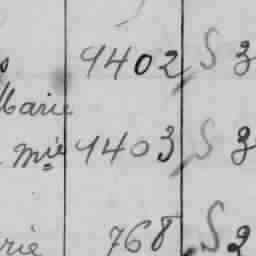 9402 S 3
Marie
mie 9403 S 3
rie 768 S 2